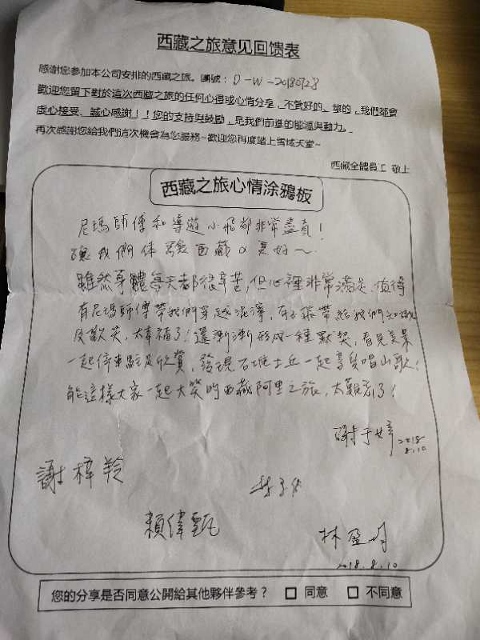 西藏之旅意见回馈表
感謝您參加本公司安排的西藏之旅。團號：D-W-20180728
歡迎您留下對於這次西藏之旅的任何心得或心情分享，不管好的、壞的，我們都會
虛心接受、誠心感謝！！您的支持與鼓勵，是我們前進的能源與動力。
再次感謝您給我們這次機會為您服務~歡迎您再度踏上雪域天堂~
西藏全體員工 敬上
西藏之旅心情涂鴉板
尼瑪師傅和導遊小飛都非常盡責！
讓我們体驗西藏の美好～
雖然身體每天都很辛苦，但心裡非常滿足，值得
有尼瑪師傅帶我們穿越混寧，有小飛帶給我們
及歡笑，太幸福了！還漸漸形成一種默契，看見美景
一起停車 欣賞，發現石堆土丘一起 唱山歌！
能這樣大家一起大笑的西藏阿里之旅，太難忘了！
謝于婷 2018
8.10
謝梓羚
賴偉甄
林盈
2018.8.10
您的分享是否同意公開給其他夥伴參考？ □ 同意 □ 不同意